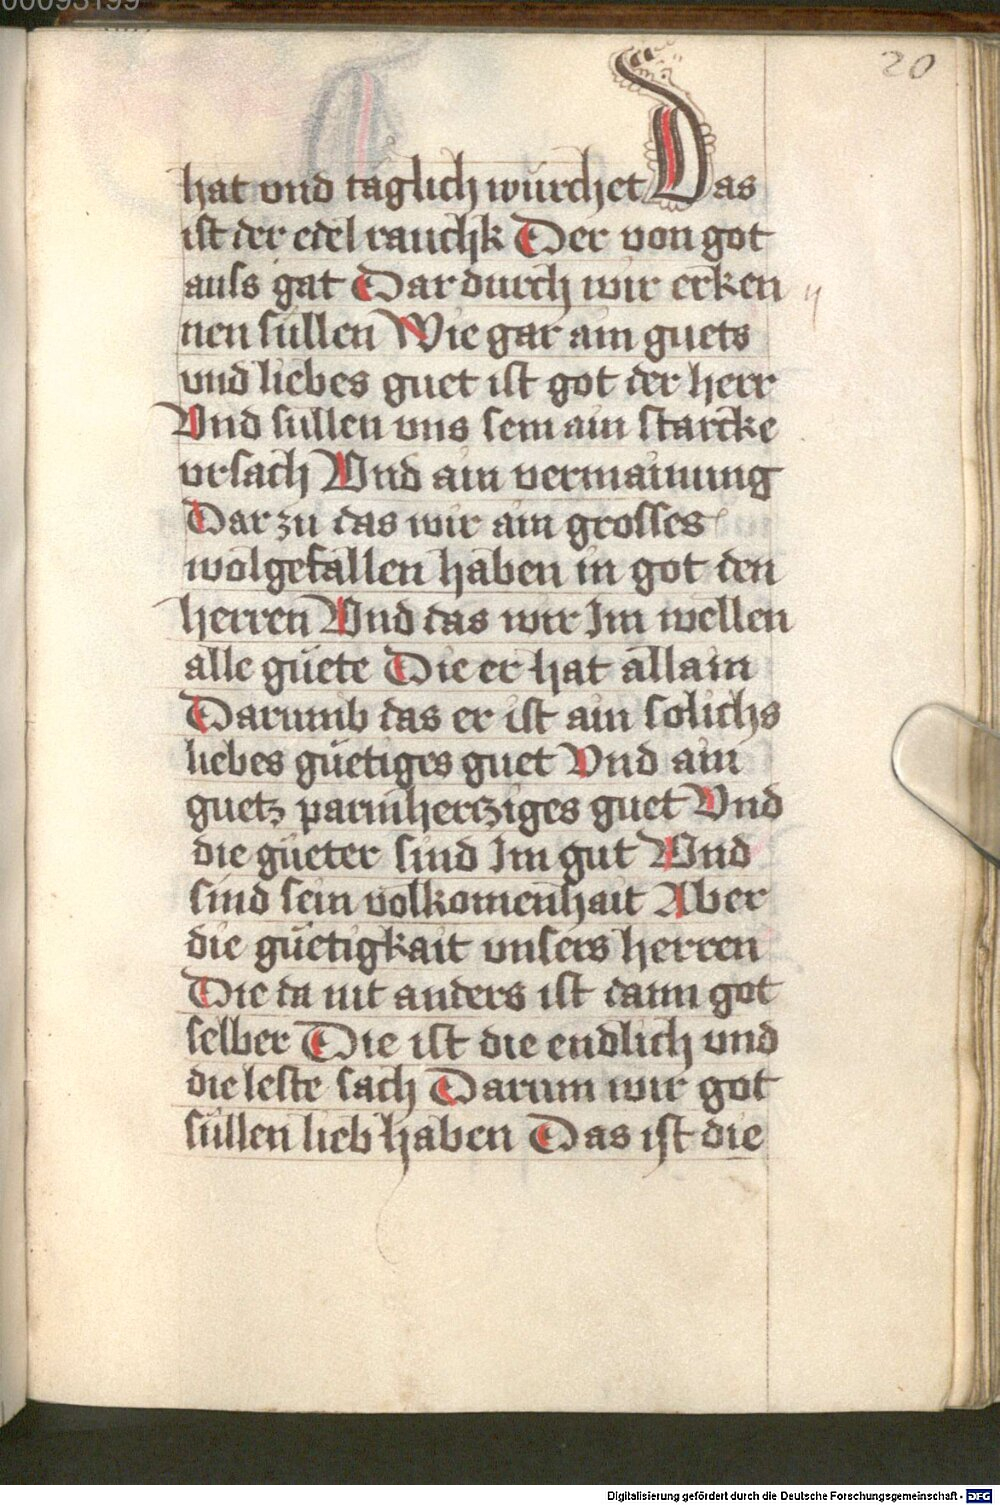 00093199
20
hat vnd täglich würchet Das
ist der edel rauchk Der von got
auss gat Dar durch wir erken
nen süllen Wie gar ain guets
vnd liebes guet ist got der herr
Vnd süllen vns sein ain starcke
vrsach Vnd ain vermainung
Dar zu das wir ain grosses
wolgefallen haben in got den
herren Vnd das wir Im wellen
alle güete Die er hat allain
Darumb das er ist ain solichs
liebes güetiges guet Vnd ain
guetz parmhertziges guet Vnd
die güeter sind Im gut Vnd
sind sein volkomenhait Aber
die güetigkait vnsers herren
Die da nit anders ist dann got
selber Die ist die endlich vnd
die leste sach Darum wir got
süllen lieb haben Das ist die
Digitalisierung gefördert durch die Deutsche Forschungsgemeinschaft - DFG